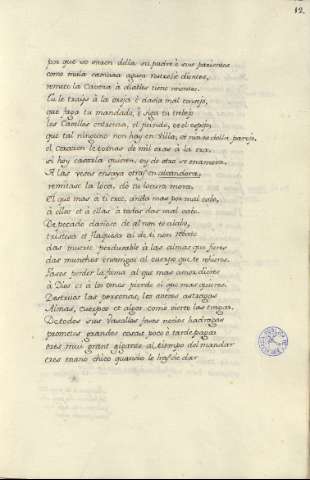 12
por que no usaen della su padre o sus parientes
como mula camurra aguza rostros e dientes,
remece la cabeza a diablos tiene mientes.
Tu le traljs a la oreja e dasla mal consejo,
que faga tu mandado, e siga tu trebejo
los Cabellos en la rueda, el peinde, et el espejo,
que tal ninguno non hay en Villa, et non es della parejo.
el corazon le tornas de mil cosas a la ora.
si hoy casarla quieren, cy de otro se enamora.
A las veses ensaya otras en alcandora,
remirase la loca, dò tu locura mora.
El que mas a ti cree, anda mas por mal cabo,
à ellos et à ellas à todos das mal cabo.
De pecado dañoso de al non te alabo,
tristesa et flaquesa al de ti non recabo
das muerte perdurable à las almas que fieres
das munchos enemigos al cuerpo que te requiere.
Fases perder la fama al que mas amor dieres
à Dios et à los omes pierde el que mas quieres.
Destruies las personas, los averes astragas
Almas, cuerpos et algos como huerte las tragas.
De todos sus Vasallos fases nesios hadragas
prometes grandes cosas, poco è tarde pagas
eres mui grant gigante al tiempo del mandar
eres enano chico quando le has de dar